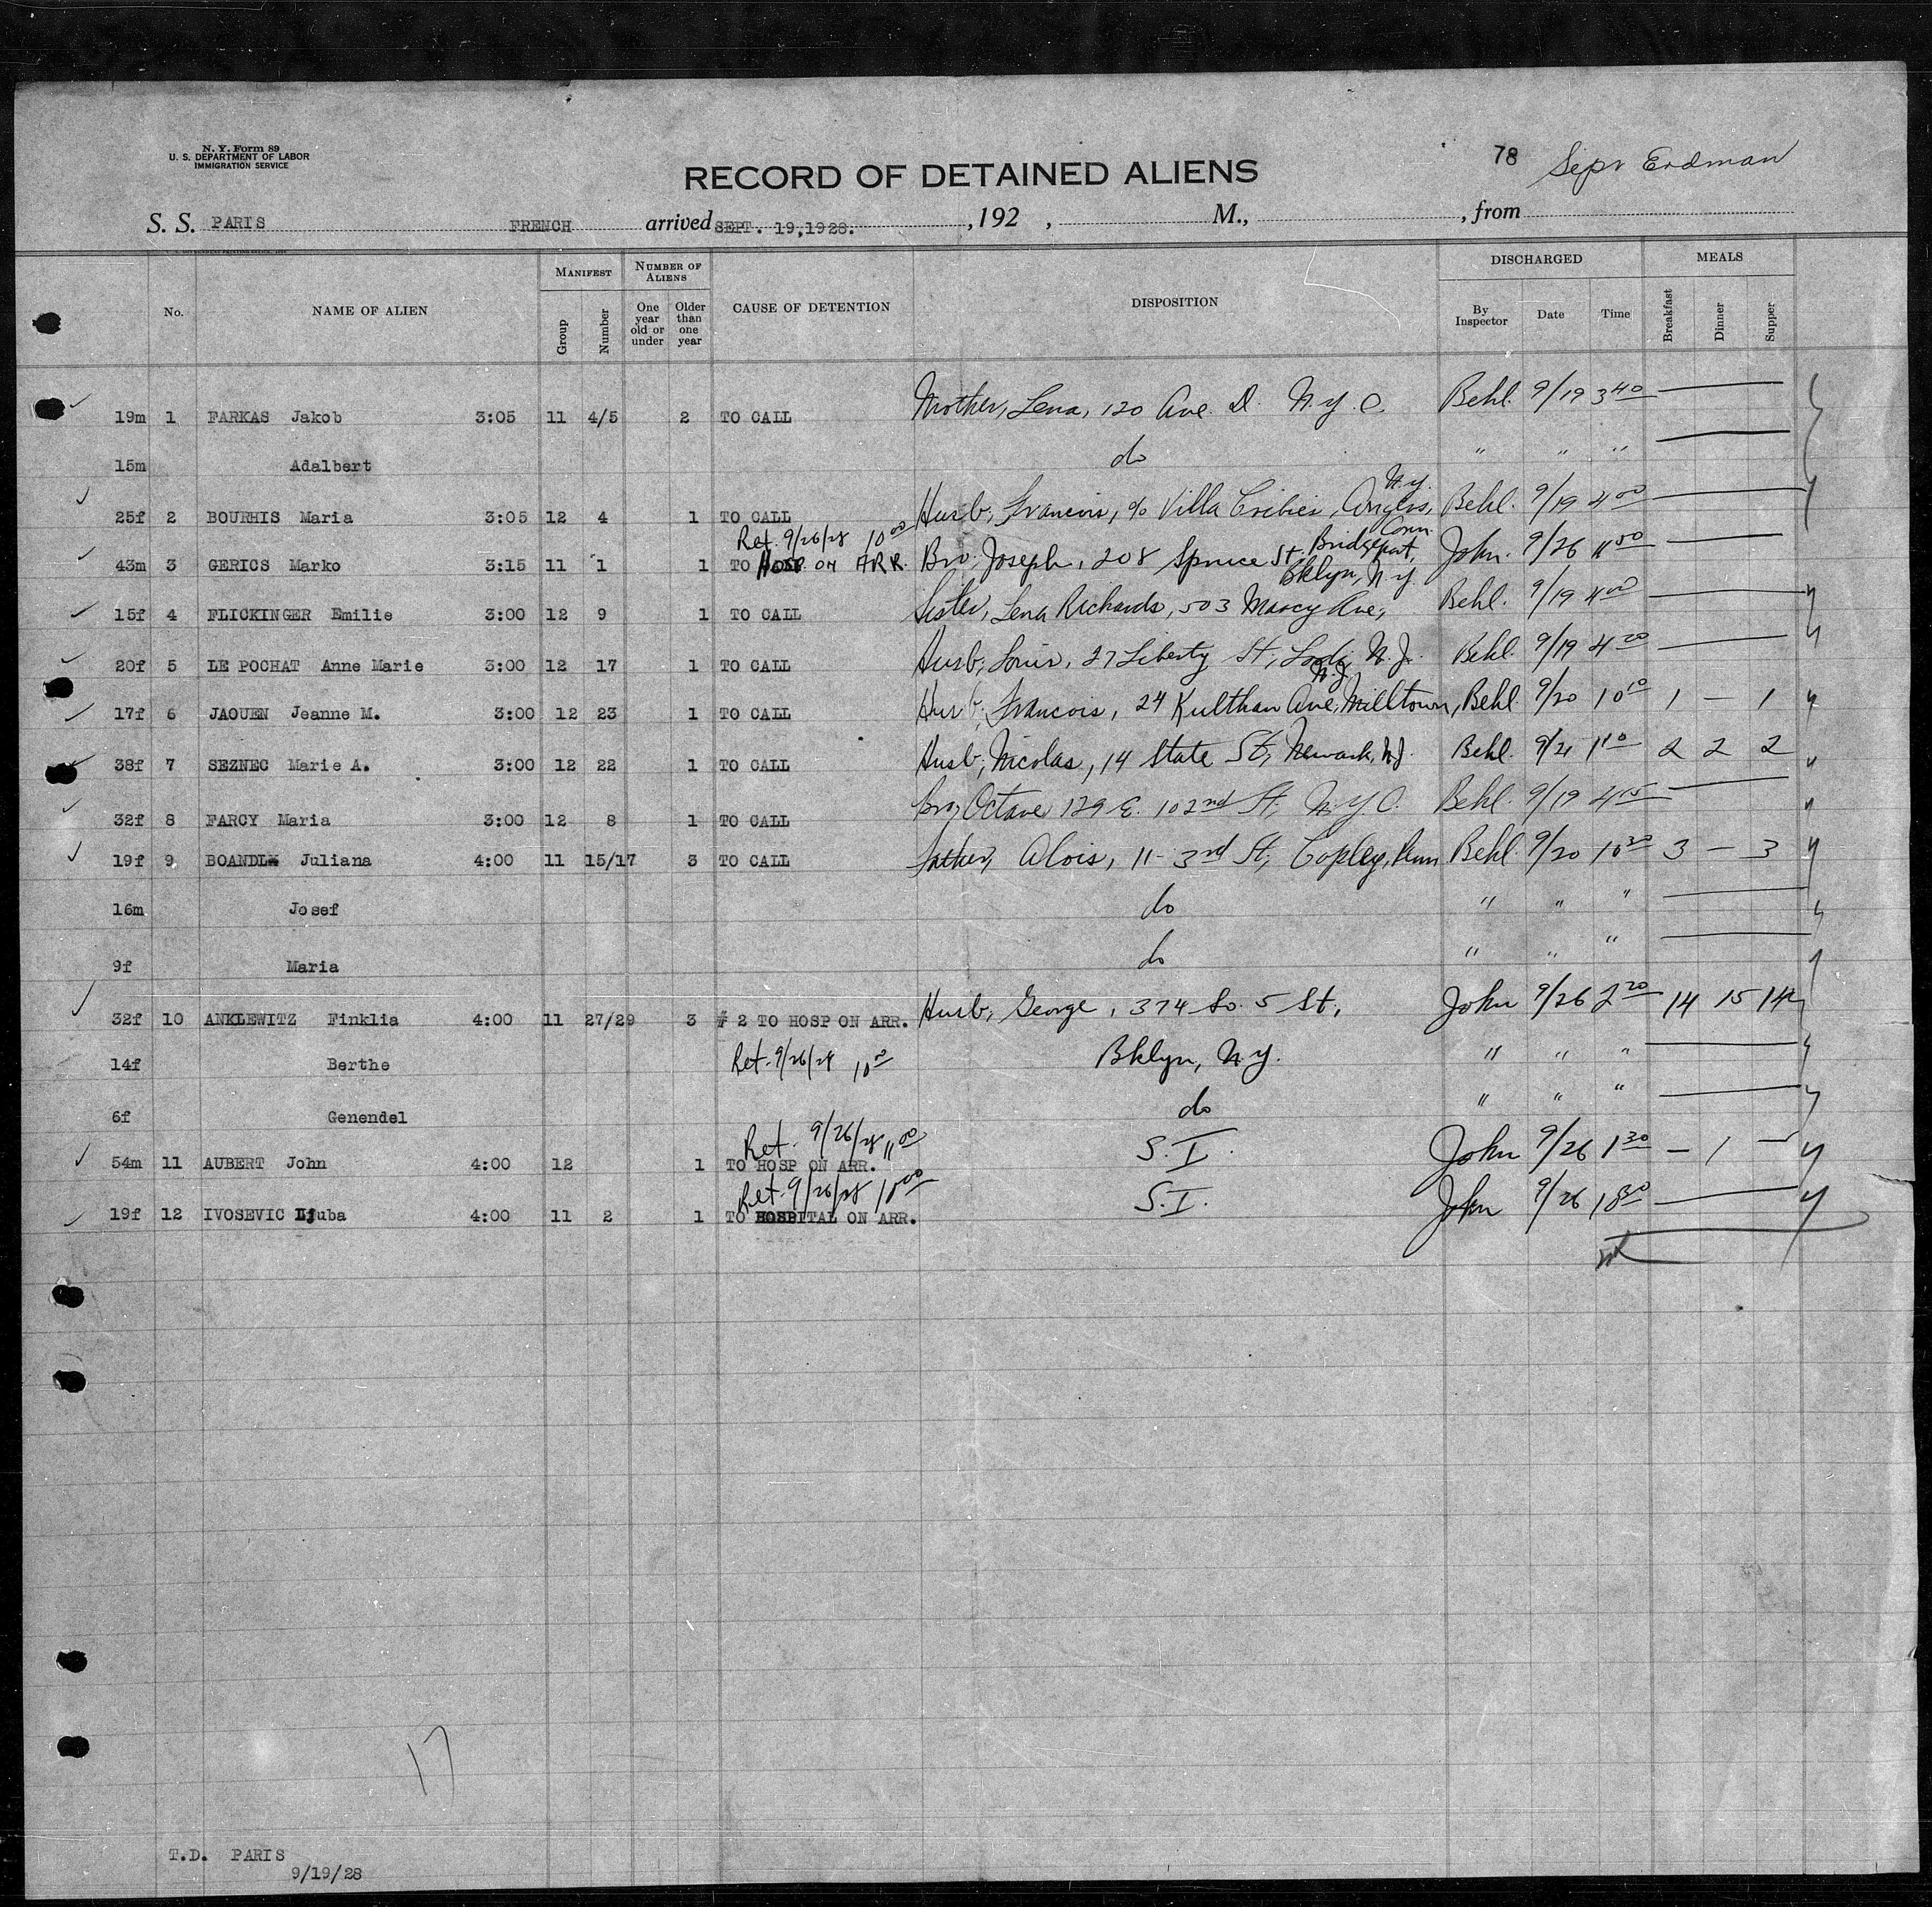 N. Y. Form 89
U. S. DEPARTMENT OF LABOR
IMMIGRATION SERVICE
78 Erdman
RECORD OF DETAINED ALIENS
S. S. PARIS FRENCH arrived SEPT. 19,1928. , 192 , M., , from
No. NAME OF ALIEN MANIFEST Group Number NUMBER OF ALIENS One year old or under Older than one year CAUSE OF DETENTION DISPOSITION DISCHARGED By Inspector Date Time MEALS Breakfast Dinner Supper
19m 1 FARKAS Jakob 3:05 11 4/5 2 TO CALL Mother, Lena, 120 Ave. D. N.Y.C. Behl. 9/19 3 40 —
15m Adalbert do " " " —
25f 2 BOURHIS Maria 3:05 12 4 1 TO CALL Husb, Francois, c/o Villa Angers, N.Y. Behl. 9/19 4 00 —
Ret. 9/26/28 10 00
43m 3 GERICS Marko 3:15 11 1 1 TO HOSP. ON ARR. Bro, Joseph, 208 Spruce St. Bridgeport, Conn. John. 9/26 11 00 —
15f 4 FLICKINGER Emilie 3:00 12 9 1 TO CALL Sister, Lena Richards, 503 Marcy Ave, Bklyn, N.Y. Behl. 9/19 4 00
20f 5 LE POCHAT Anne Marie 3:00 12 17 1 TO CALL Husb, Louis, 27 Liberty St, Lodi, N.J. Behl. 9/19 4 20 —
17f 6 JAOUEN Jeanne M. 3:00 12 23 1 TO CALL Husb, Francois, 24 Kulthan Ave, Milltown, N.J. Behl. 9/20 10 10 1 — 1
38f 7 SEZNEC Marie A. 3:00 12 22 1 TO CALL Husb, Nicolas, 14 State St, Newark, N.J. Behl. 9/21 1 10 2 2 2
32f 8 FARCY Maria 3:00 12 8 1 TO CALL Bro, Octave 129 E. 102nd St, N.Y.C. Behl. 9/19 4 05 —
19f 9 BOANDL Juliana 4:00 11 15/17 3 TO CALL Father, Alois, 11- 3rd St, Copley, Penn Behl. 9/20 10 30 3 — 3
16m Josef do " " " —
9f Maria do " " " —
32f 10 ANKLEWITZ Finklia 4:00 11 27/29 3 # 2 TO HOSP ON ARR. Husb, George, 374 So. 5 St, John 9/26 2 20 14 15 14
14f Berthe Ret. 9/26/28 10 00 Bklyn, N.Y. " " " —
6f Genendel do " " " —
Ret. 9/26/28 11 00
54m 11 AUBERT John 4:00 12 1 TO HOSP ON ARR. S.I. John 9/26 1 30 — 1 —
Ret. 9/26/28 10 00
19f 12 IVOSEVIC Ljuba 4:00 11 2 1 TO HOSPITAL ON ARR. S.I. John 9/26 10 30 —
17
T.D. PARIS
9/19/28